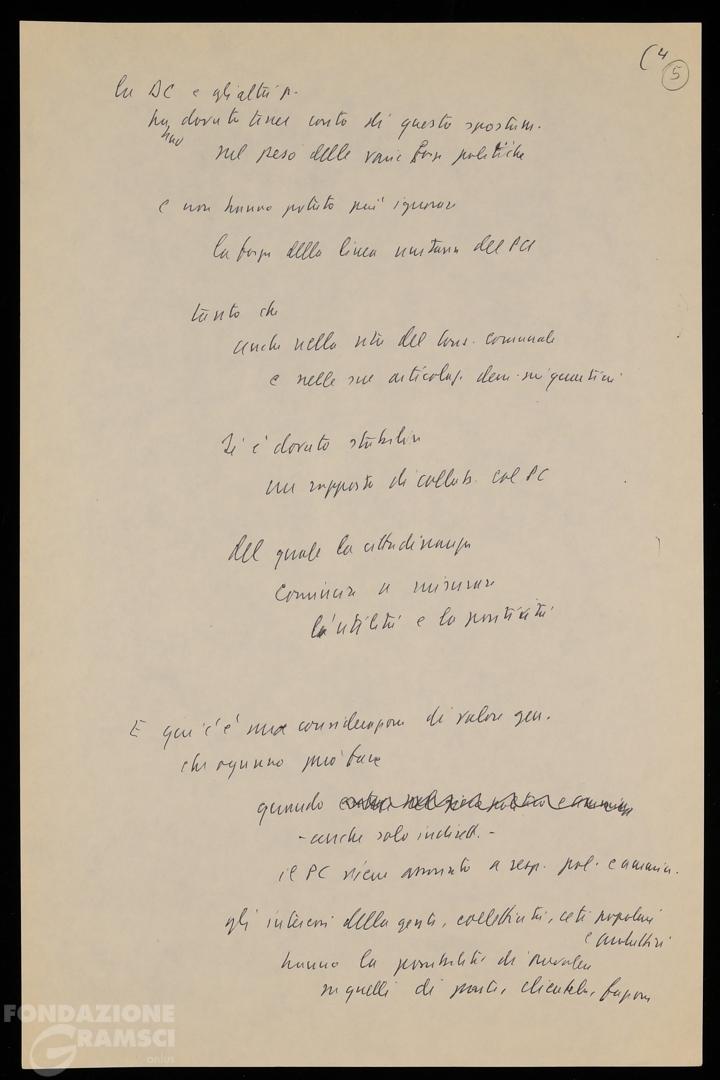 (4
5
La DC e gli altri p.
hanno dovuto tener conto di questo spostam.
nel peso delle varie forze politiche
e non hanno potuto più ignorare
la forza della linea unitaria del PCI
tanto che
anche nella vita del Cons. comunale
e nelle sue articolaz. dem. nei quartieri
Si è dovuto stabilire
un rapporto di collab. col PC
del quale la cittadinanza
comincia a misurare
l'utilità e la positività
E qui c'è una considerazione di valore gen.
che ognuno può fare
quando
- anche solo indirett. -
il PC viene associato a resp. pol. e ammin.
gli interessi della gente, collettività, ceti popolari
e collettivi
hanno la possibilità di prevalere
su quelli di parte, clientele, fazioni
FONDAZIONE
GRAMSCI
onlus